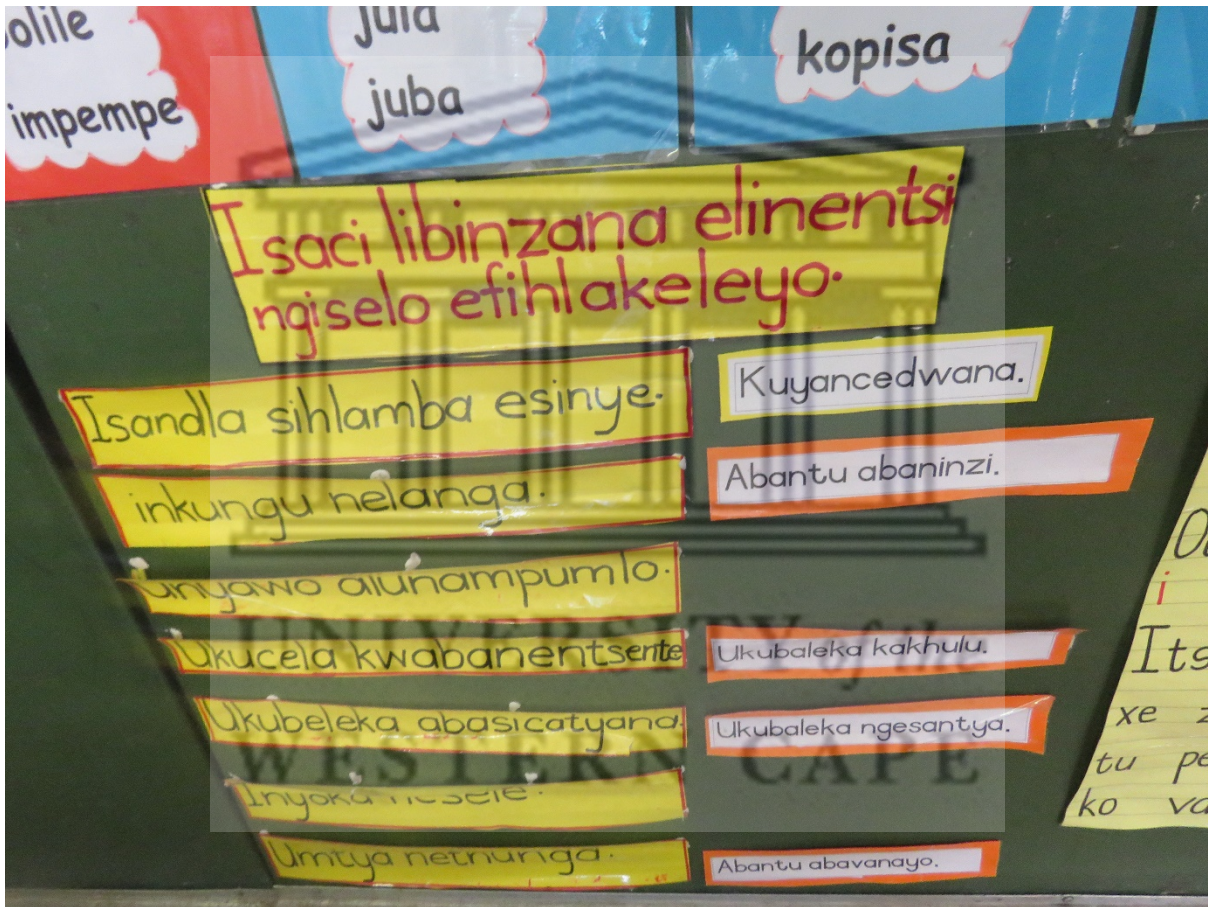 impempe
juba
kopisa
Isaci libinzana elinentsi
ngiselo efihlakeleyo.
Isandla sihlamba esinye.
Kuyancedwana.
inkungu nelanga.
Abantu abaninzi.
unyawo alunampumlo.
Ukucela kwabanentsente
Ukubaleka kakhulu.
Ukubeleka abasicatyana.
Ukubaleka ngesantya.
Inyoka nesele.
Umtya nethunga.
Abantu abavanayo.
i
Its
xe z
tu pe
ko va
UNIVERSITY of the
WESTERN CAPE